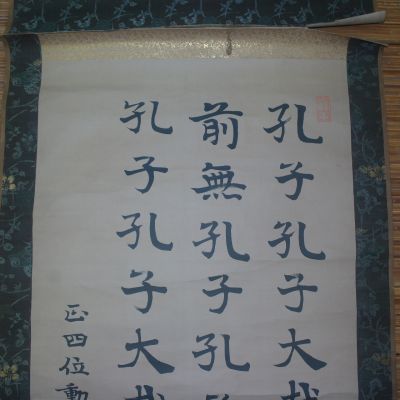 孔子孔子大
前無孔子孔
孔子孔子大
正四位勳